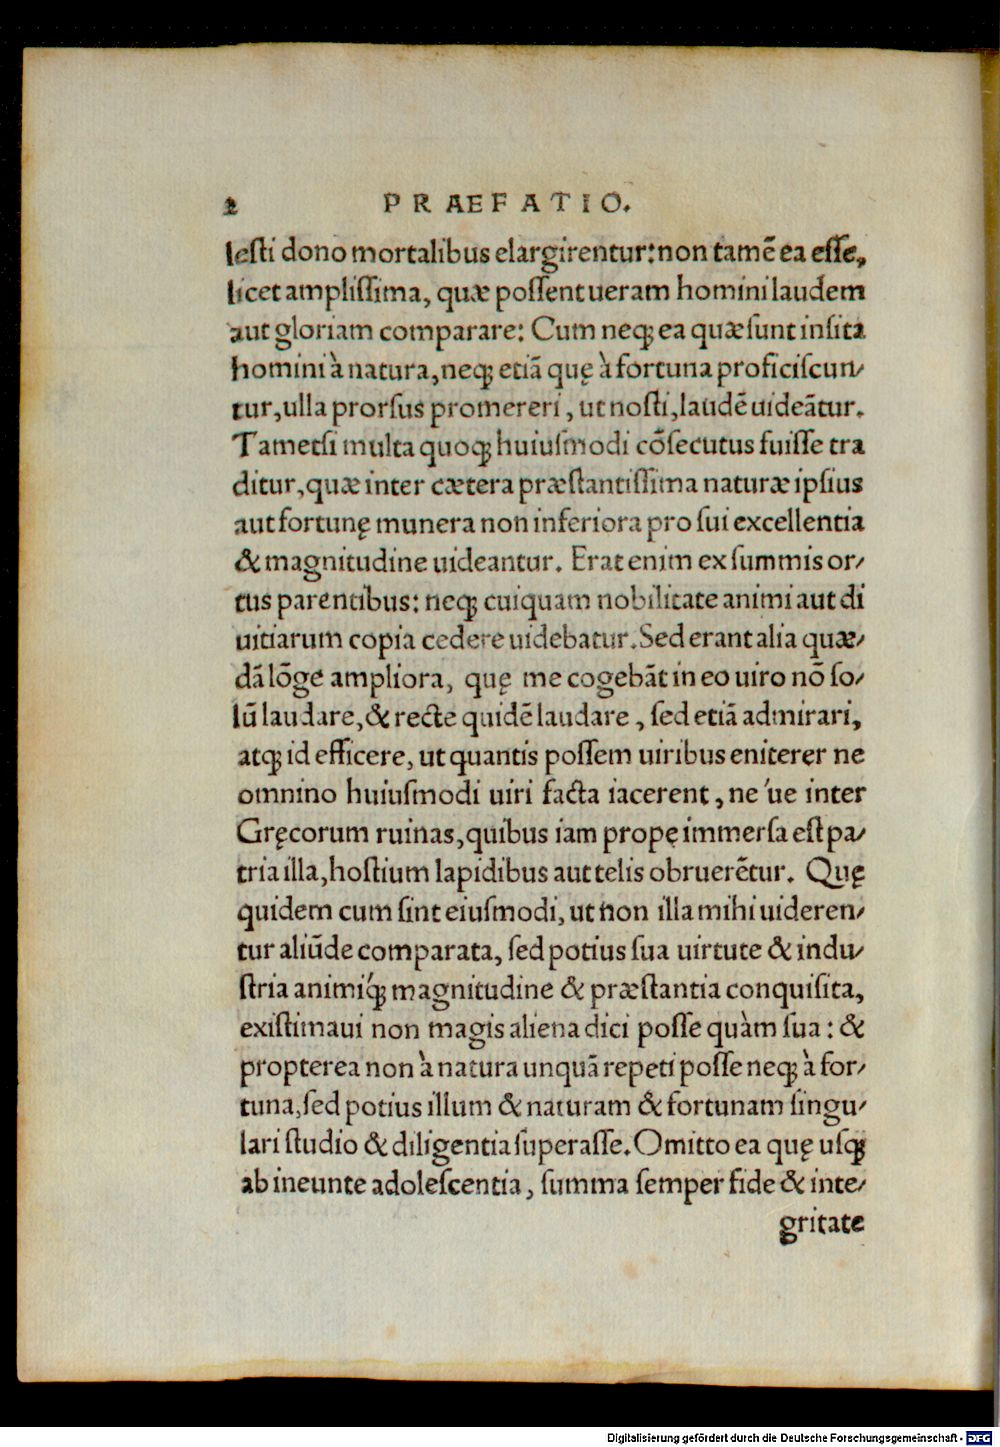 2 PRAEFATIO.
lesti dono mortalibus elargirentur: non tamē ea eſſe,
licet ampliſſima, quæ poſſent ueram homini laudem
aut gloriam comparare: Cum neqꝫ ea quæ ſunt inſita
homini à natura, neqꝫ etiā quę à fortuna proficiſcun/
tur, ulla prorſus promereri, ut noſti, laudē uideātur.
Tametſi multa quoqꝫ huiuſmodi cōſecutus fuiſſe tra
ditur, quæ inter cætera præſtantiſſima naturæ ipſius
aut fortunę munera non inferiora pro ſui excellentia
& magnitudine uideantur. Erat enim ex ſummis or/
tus parentibus: neqꝫ cuiquam nobilitate animi aut di
uitiarum copia cedere uidebatur. Sed erant alia quæ/
dā lōge ampliora, quę me cogebāt in eo uiro nō ſo/
lū laudare, & recte quidē laudare, ſed etiā admirari,
atqꝫ id efficere, ut quantis poſſem uiribus eniterer ne
omnino huiuſmodi uiri facta iacerent, ne ́ue inter
Gręcorum ruinas, quibus iam propę immerſa eſt pa/
tria illa, hoſtium lapidibus aut telis obruerētur. Quę
quidem cum ſint eiuſmodi, ut non illa mihi uideren/
tur aliūde comparata, ſed potius ſua uirtute & indu/
ſtria animiq́ꝫ magnitudine & præſtantia conquiſita,
exiſtimaui non magis aliena dici poſſe quàm ſua: &
propterea non à natura unquā repeti poſſe neqꝫ à for/
tuna, ſed potius illum & naturam & fortunam ſingu/
lari ſtudio & diligentia ſuperaſſe. Omitto ea quę uſqꝫ
ab ineunte adoleſcentia, ſumma ſemper fide & inte/
gritate
Digitalisierung gefördert durch die Deutsche Forschungsgemeinschaft - DFG